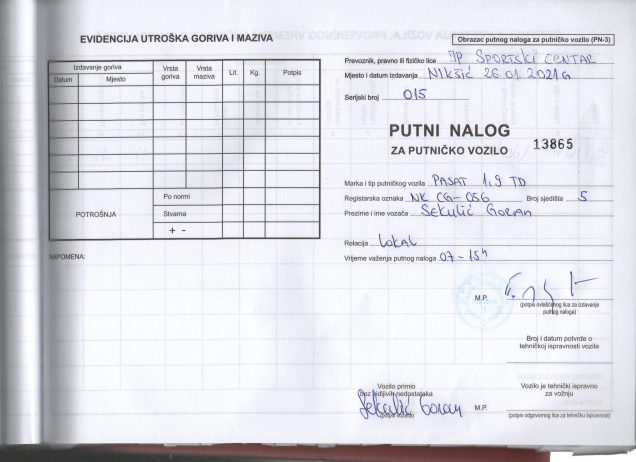 EVIDENCIJA UTROŠKA GORIVA I MAZIVA
Izdavanje goriva
Datum
Mjesto
Vrsta goriva
Vrsta maziva
Lit.
Kg.
Potpis
POTROŠNJA
Po normi
Stvarna
+ -
NAPOMENA:
Obrazac putnog naloga za putničko vozilo (PN-3)
Prevoznik, pravno ili fizičko lice JP SPORTSKI CENTAR
Mjesto i datum izdavanja NIKŠIĆ 26.01.2021 G
Serijski broj 015
PUTNI NALOG
ZA PUTNIČKO VOZILO 13865
Marka i tip putničkog vozila PASAT 1,9 TD
Registarska oznaka NK CG-056 Broj sjedišta 5
Prezime i ime vozača SEKULIĆ GORAN
Relacija LOKAL
Vrijeme važenja putnog naloga 07-15h
M.P.
(potpis ovlašćenog lica za izdavanje
putnog naloga)
Broj i datum potvrde o
tehničkoj ispravnosti vozila
Vozilo primio
bez vidljivih nedostataka
Sekulić Goran
(potpis vozača)
M.P.
Vozilo je tehnički ispravno
za vožnju
(potpis odgovornog lica za tehničku ispravnost)